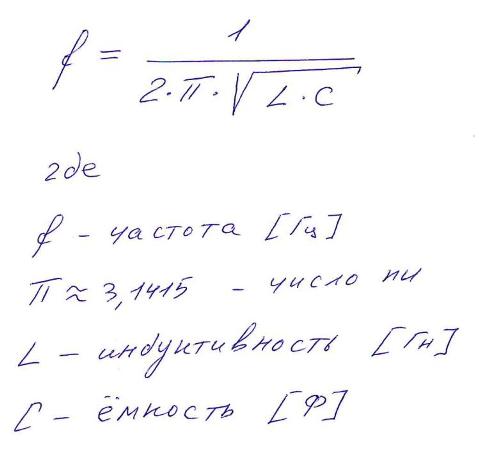 f = 1 / (2·π·√(L·C))
где
f – частота [Гц]
π ≈ 3,1415 – число пи
L – индуктивность [Гн]
C – ёмкость [Ф]